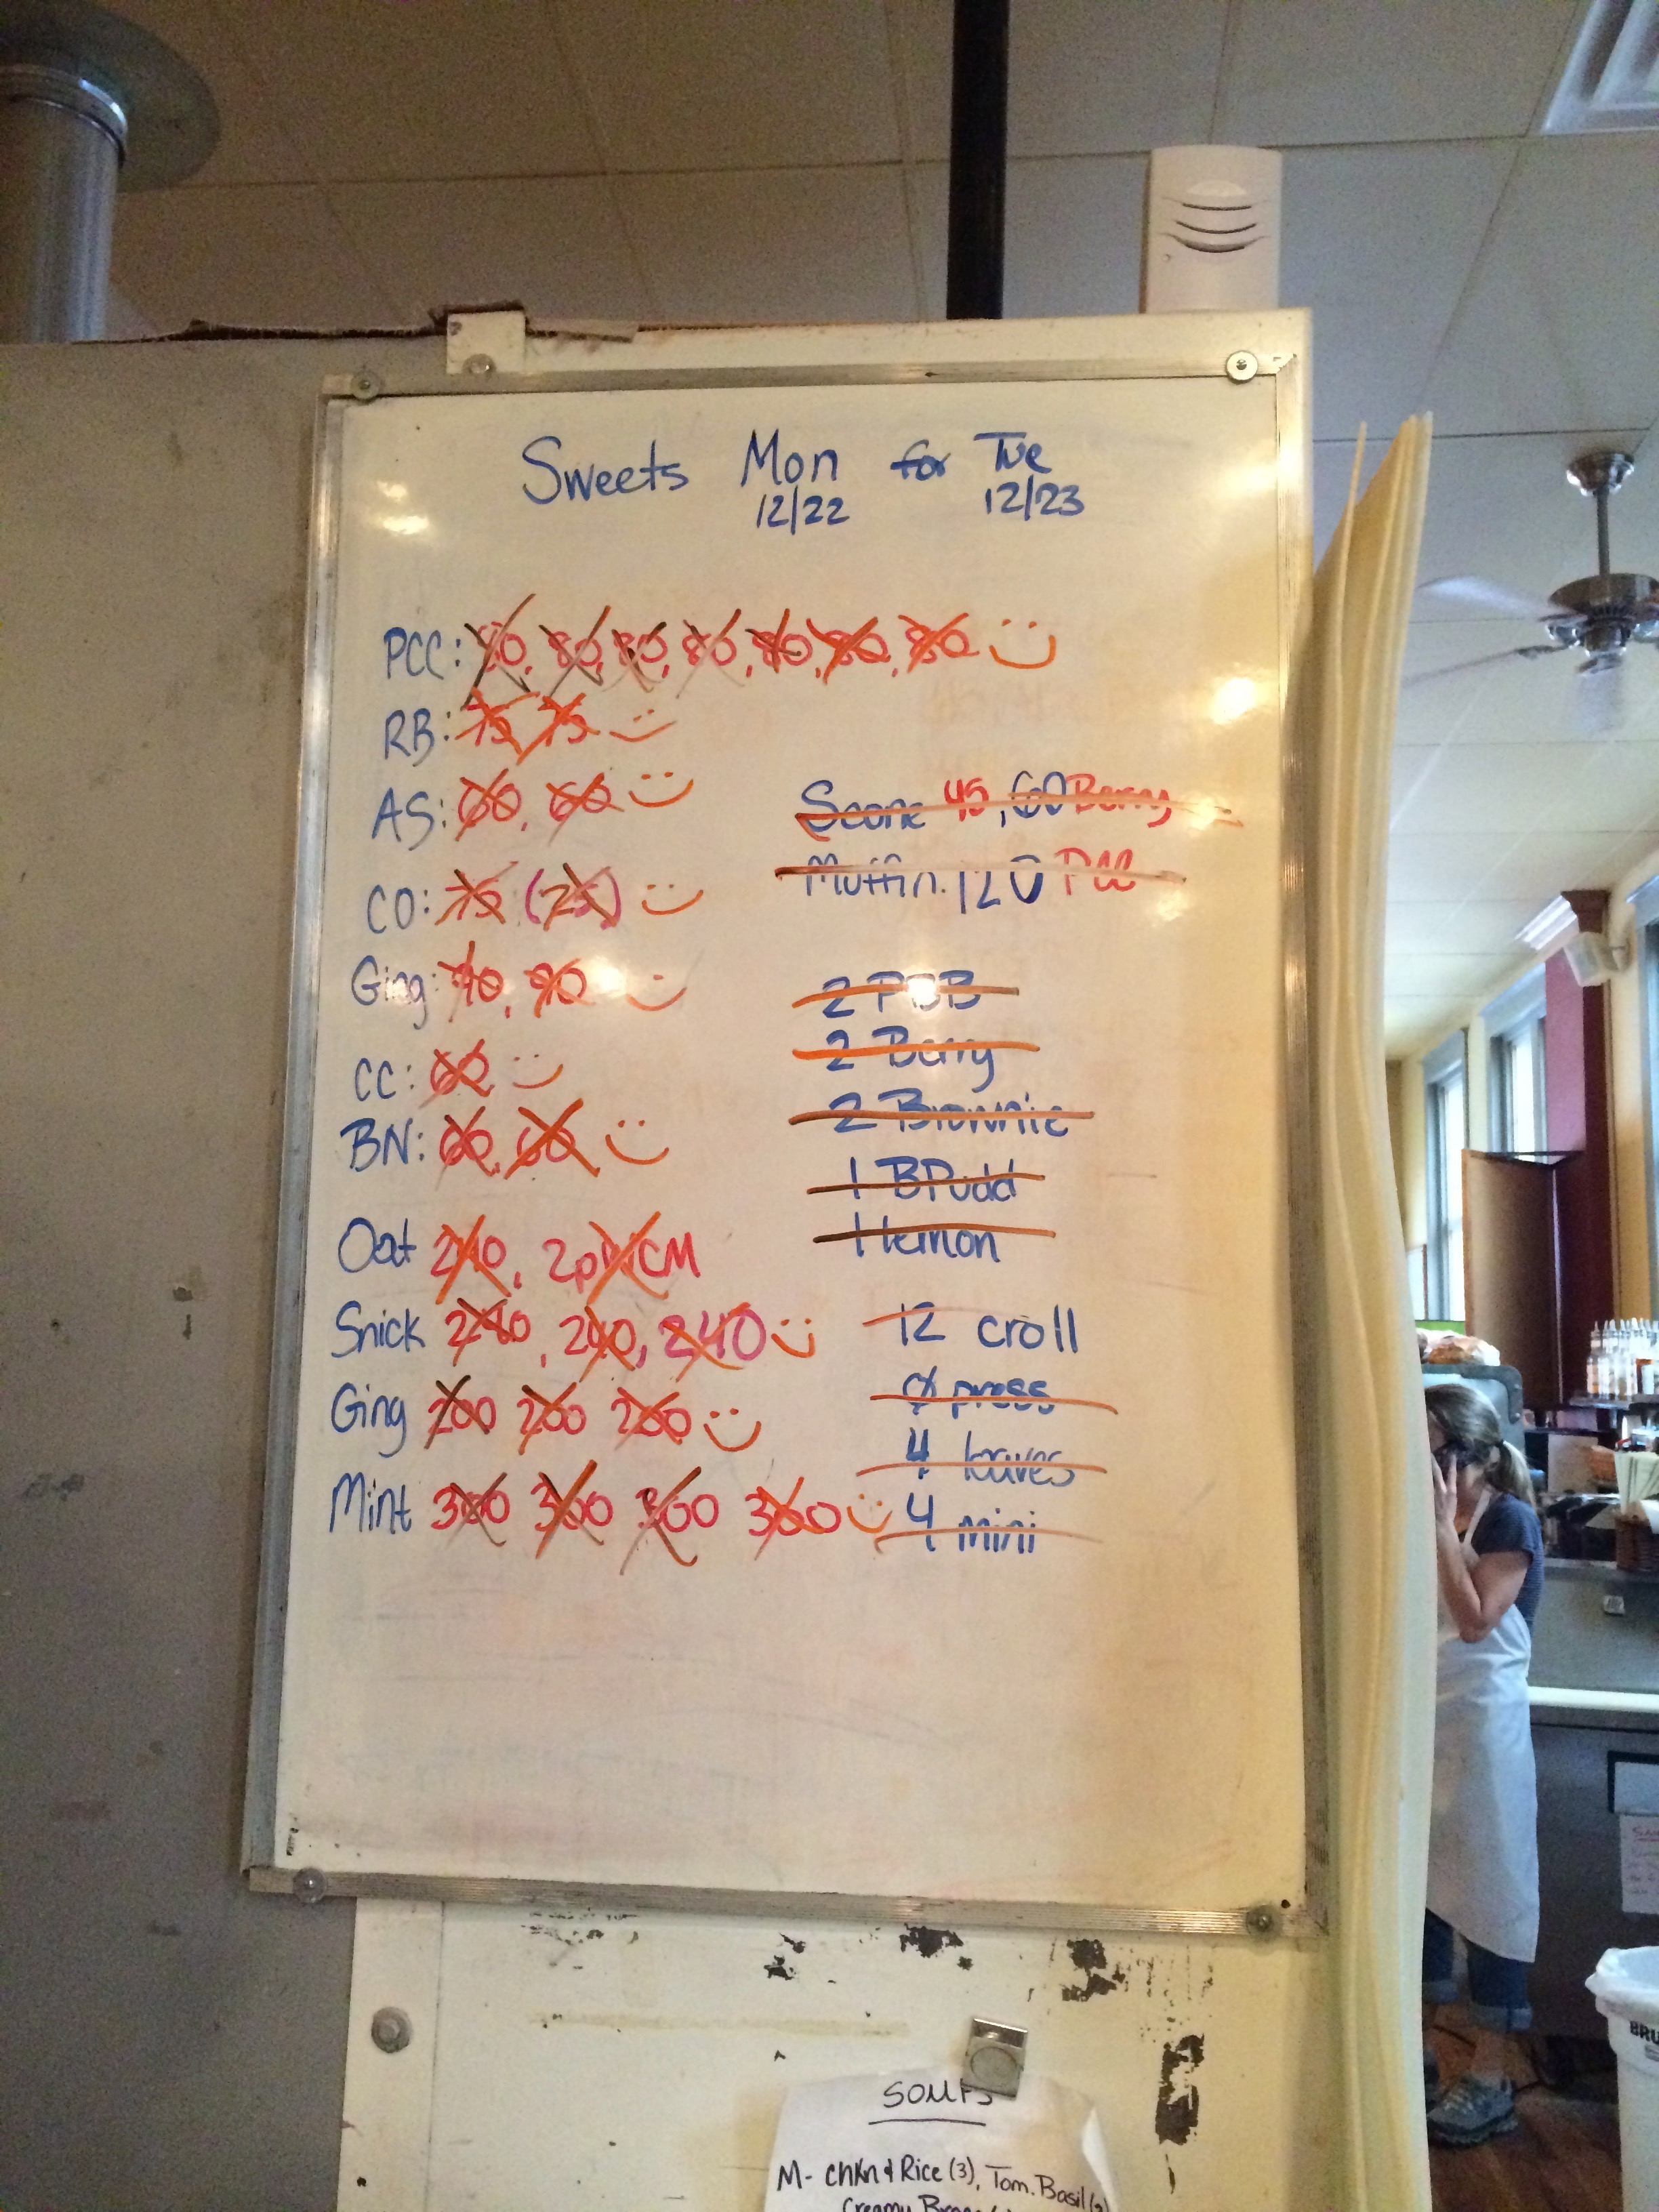 Sweets Mon for Tue
12/22 12/23
PCC: 80, 80, 80, 80, 80, 80, 80
RB: 75 75
AS: 60, 60
Scone 45, 60 Berry
CO: 75 (25)
Muffin. 120
Ging: 90, 90
2 PBB
CC: 60
2 Berry
BN: 60, 60
2 Brownie
1 BPudd
Oat 240, CM
1 lemon
Snick 240, 240, 240
12 croll
Ging 200 200 200
press
4 loaves
Mint 300 300 300 300
4 mini
SOUPS
M- Chkn & Rice (3), Tom. Basil
Creamy
BRU